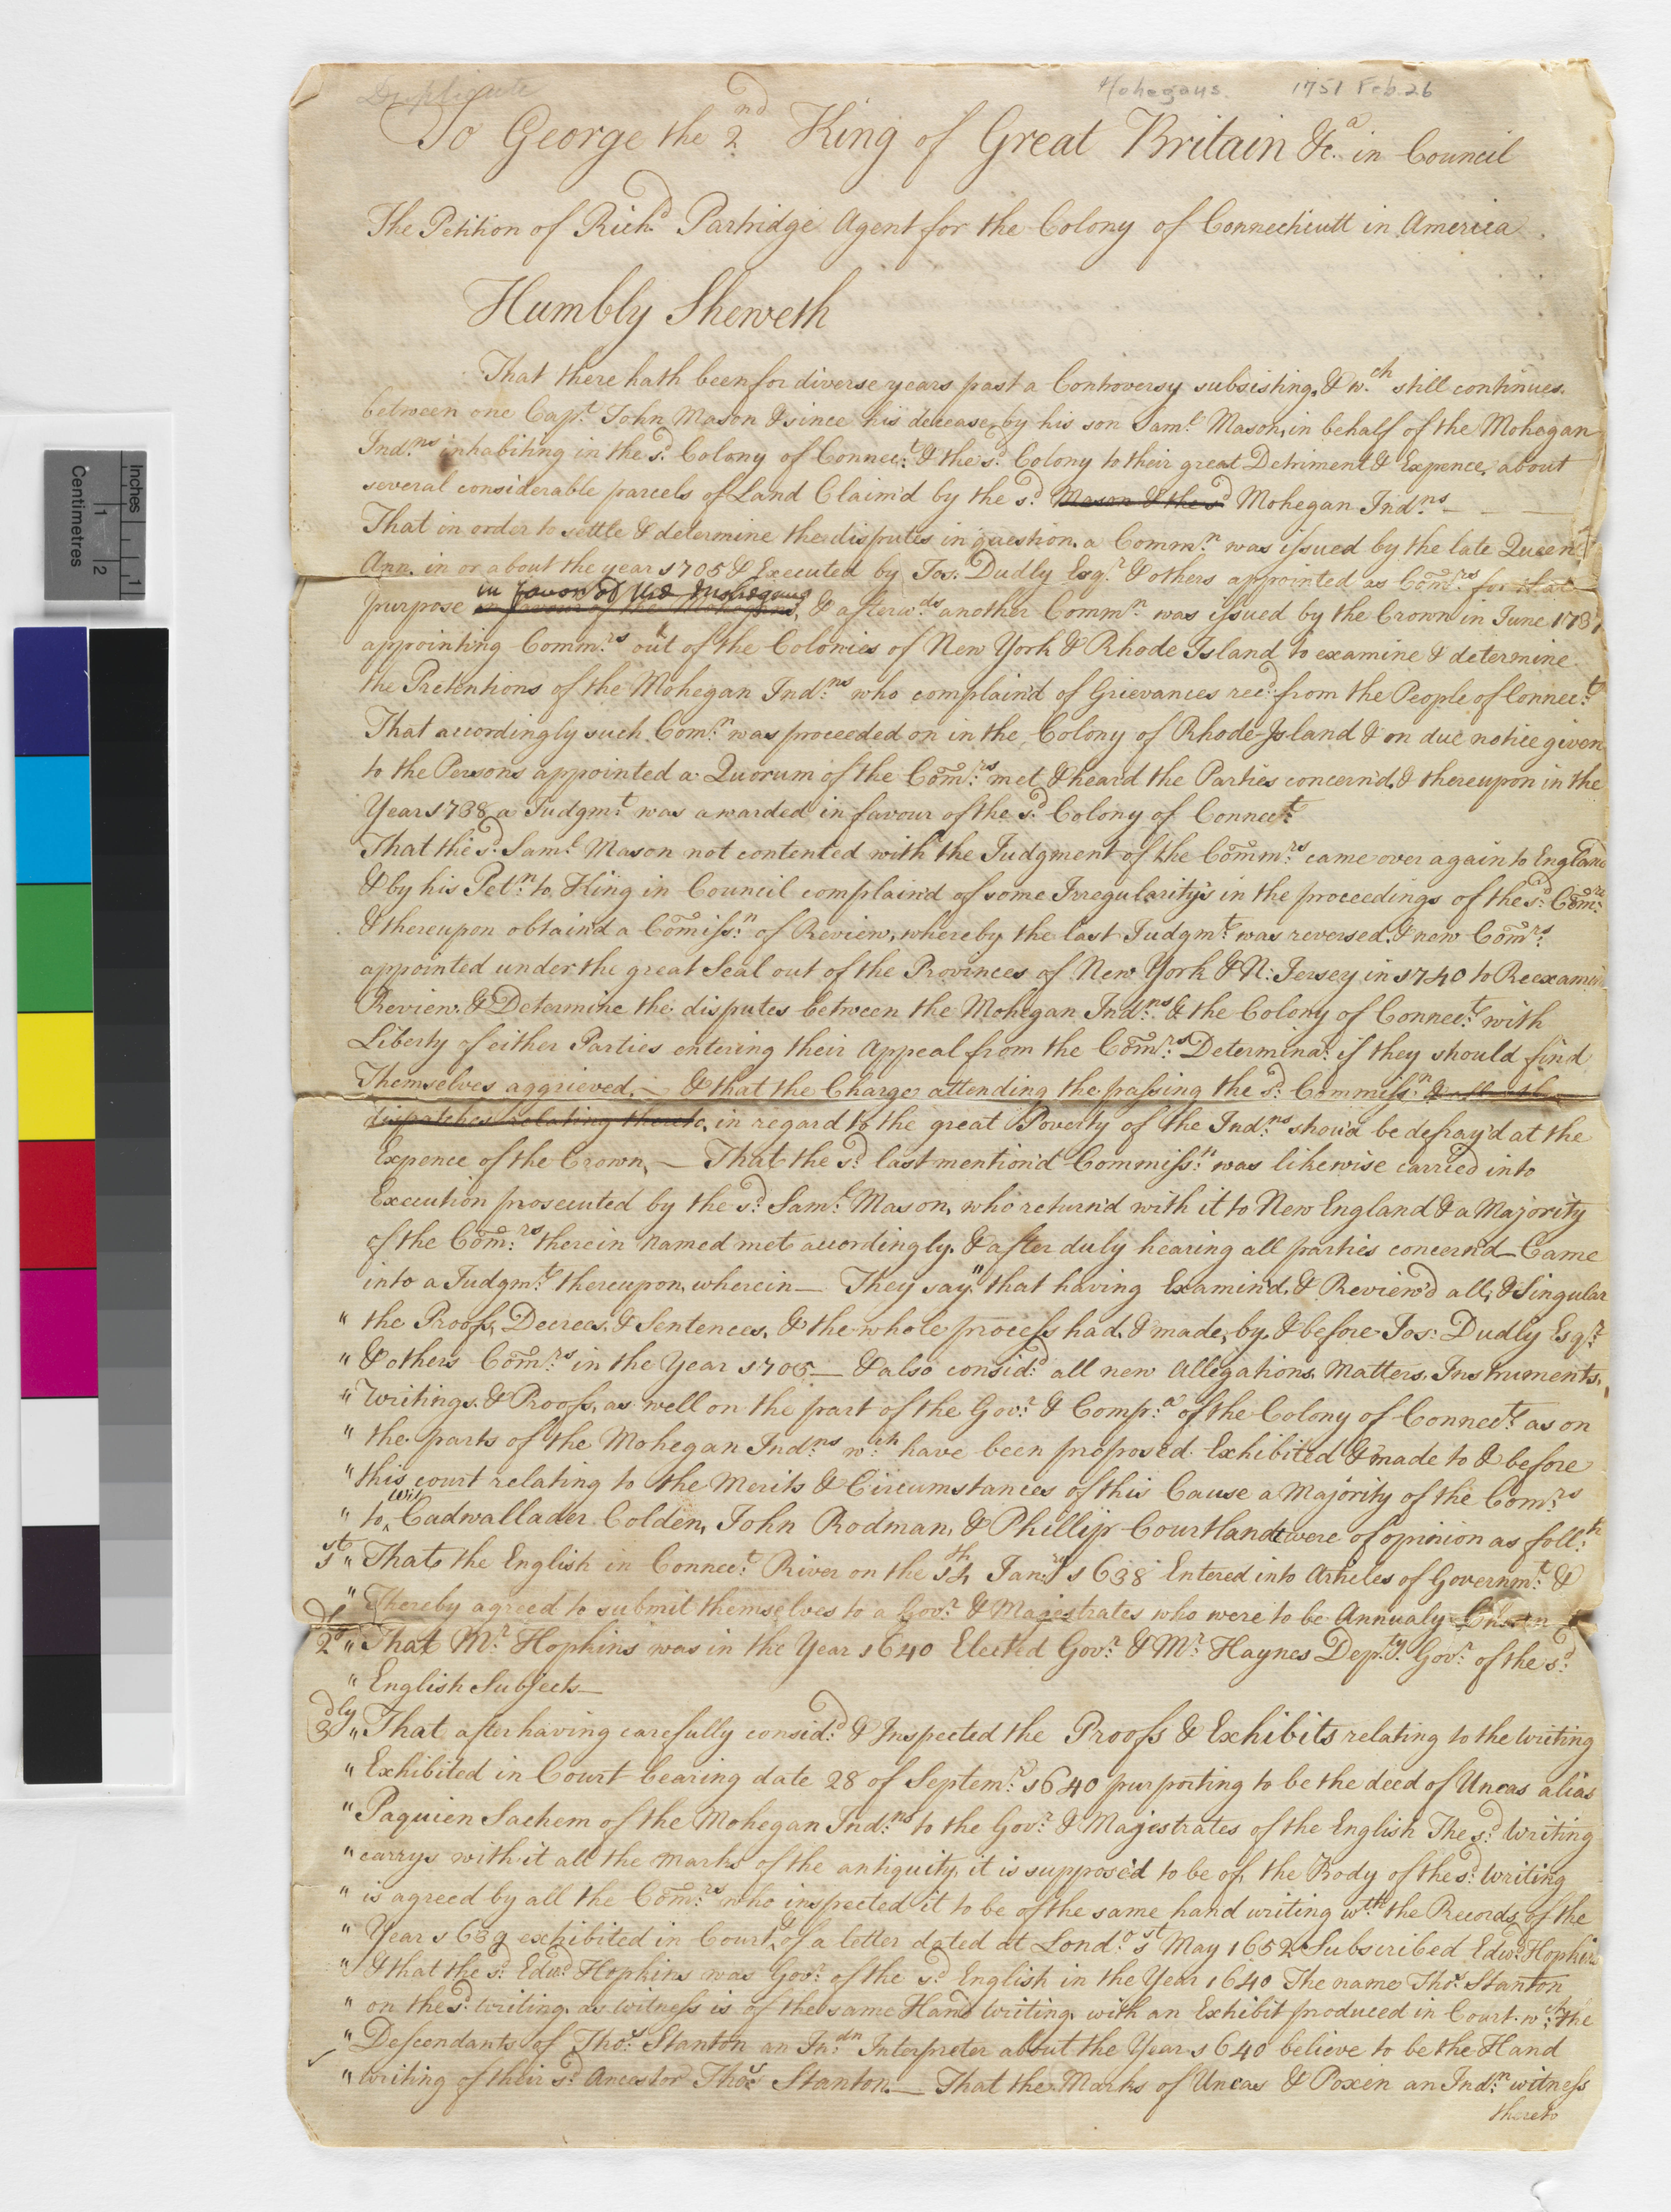 Duplicate
Mohegans. 1751 Feb. 26
To George the 2nd King of Great Britain &c.a in Council
The Petition of Richd. Partridge Agent for the Colony of Connecticutt in America.
Humbly Sheweth
That there hath been for diverse years past a Controversy subsisting, & wch. still continues.
between one Capt. John Mason & since his decease, by his son Saml. Mason, in behalf of the Mohegan
Indns. inhabiting in the sd. Colony of Connect. & the sd. Colony to their great Detriment & Expence, about
several considerable parcels of Land Claim'd by the sd. Mason & the sd Mohegan Indns. - - -
That in order to settle & determine the disputes in question. a Commn. was issued by the late Queen
Ann. in or about the year 1705 & Executed by Jos. Dudly Esqr. & others appointed as Comrs. for that
in favor of the Mohegans
purpose in favour of the Mohegans, & afterwds another Commn. was issued by the Crown in June 1737
appointing Commrs. out of the Colonies of New York & Rhode Island to examine & determine.
the Pretentions of the Mohegan Indns. who complain'd of Grievances recd. from the People of Connect.
That accordingly such Comn. was proceeded on in the Colony of Rhode-Island & on due notice given
to the Persons appointed a Quorum of the Comrs. met & heard the Parties concern'd, & thereupon in the
Year 1738 a Judgmt. was awarded in favour of the sd. Colony of Connect.
That the sd. Saml. Mason not contented with the Judgment of the Commrs. came over again to England
& by his Petn. to King in Council complain'd of some Irregularity's in the proceedings of the sd. Comrs.
& thereupon obtain'd a Comissn. of Review, whereby the last Judgmt. was reversed, & new Comrs.
appointed under the great Seal out of the Provinces of New York & N: Jersey in 1740 to Reexamin
Review & Determine the disputes between the Mohegan Indns. & the Colony of Connect. with
Liberty of either Parties entering their Appeal from the Comrs. Determina. if they should find
Themselves aggrieved. - & that the Charge attending the passing the sd. Commissn. & all other
dispatches relating thereto, in regard to the great Poverty of the Indns. shou'd be defray'd at the
Expence of the Crown, - That the sd. last mention'd Commissn. was likewise carried into
Execution prosecuted by the sd. Saml. Mason, who return'd with it to New England & a Majority
of the Comrs. therein named met accordingly. & after duly hearing all parties concern'd - Came
into a Judgmt. thereupon, wherein - They say "that having Examin'd, & Review'd all, & Singular
" the Proofs, Decrees, & Sentences, & the whole process had, & made, by, & before Jos: Dudly Esqr.
" & others Comrs. in the Year 1705 - & also considd. all new Allegations, Matters, Instruments,
" Writings, & Proofs, as well on the part of the Govr. & Compa. of the Colony of Connect. as on
" the parts of the Mohegan Indns. wch have been proposed Exhibited & made to & before
" this court relating to the Merits & Circumstances of this Cause a Majority of the Comrs
wit
" to, Cadwallader Colden, John Rodman, & Phillip Courtlandt were of opinion as follth.
1st " That the English in Connect. River on the 14th Janry 1638 Entered into Articles of Governmt. &
" Thereby agreed to submit themselves to a Govr. & Majestrates who were to be Annualy Chosen
2d " That Mr. Hopkins was in the Year 1640 Elected Govr. & Mr. Haynes Depty. Govr. of the sd.
" English Subjects -
3dly " That after having carefully considd. & Inspected the Proofs & Exhibits relating to the writing
" Exhibited in Court bearing date 28 of Septemr. 1640 purporting to be the deed of Uncas alias
" Paquien Sachem of the Mohegan Indns. to the Govr. & Majestrates of the English The sd. Writing
" carrys with it all the marks of the antiquity, it is suppose'd to be of, the Body of the sd. Writing
" is agreed by all the Comrs. who inspected it to be of the same hand writing wth. the Records of the
" Year 1639 exhibited in Court, & of a letter dated at Londo. 1st May 1652. Subscribed Edwd. Hopkins
" & that the sd. Edwd. Hopkins was Govr. of the sd. English in the Year 1640 The name Thos. Stanton
" on the sd. writing. as witness is of the same Hand writing. with an Exhibit produced in Court. wch. the
" Descendants of Thos. Stanton an Indn. Interpreter about the Year 1640 believe to be the Hand
" writing of their sd. Ancestor Thos. Stanton. - That the Marks of Uncas & Poxen an Indn. witness
thereto
Inches
Centimetres
1
2
1